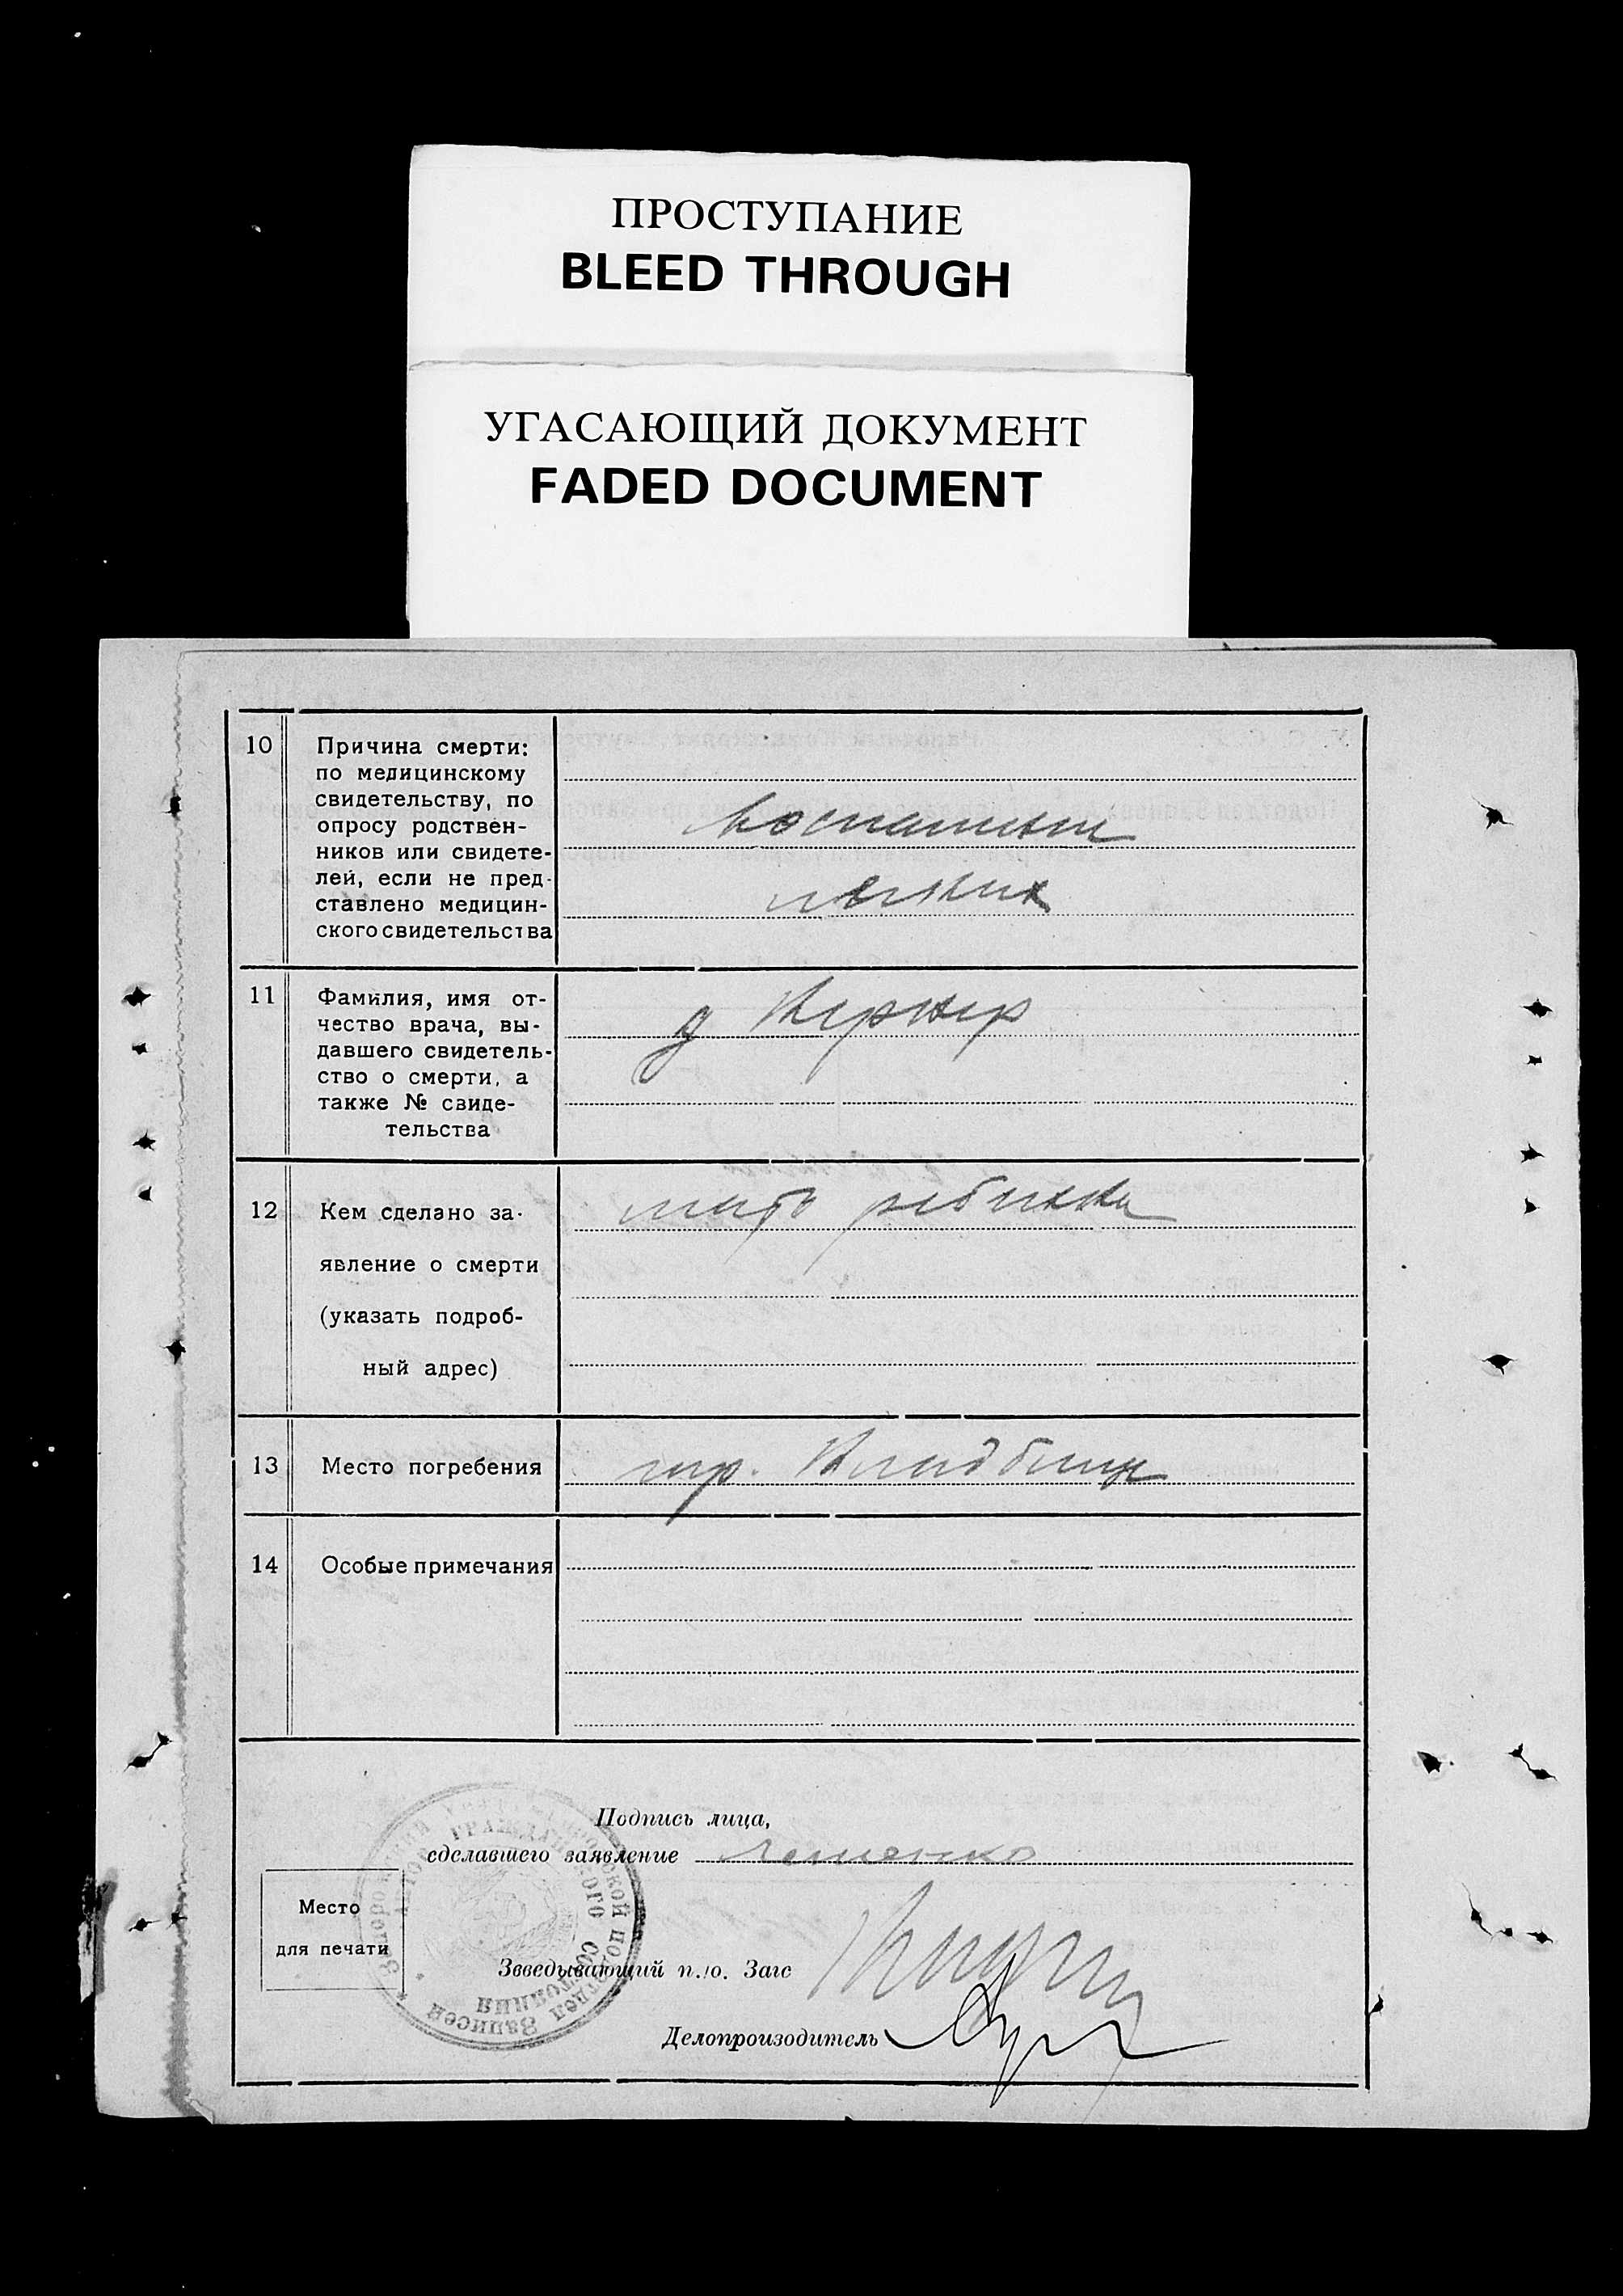 ПРОСТУПАНИЕ
BLEED THROUGH
УГАСАЮЩИЙ ДОКУМЕНТ
FADED DOCUMENT
10
Причина смерти:
по медицинскому
свидетельству, по
опросу родствен-
ников или свидете-
лей, если не пред-
ставлено медицин-
ского свидетельства
воспаление
легких
11
Фамилия, имя от-
чество врача, вы-
давшего свидетель-
ство о смерти, а
также № свиде-
тельства
12
Кем сделано за-
явление о смерти
(указать подроб-
ный адрес)
мать ребенка
13
Место погребения
гор. Кладбище
14
Особые примечания
Подпись лица,
сделавшего заявление
Место
для печати
Зеведывающий п.ю. Загс
Делопроизодитель